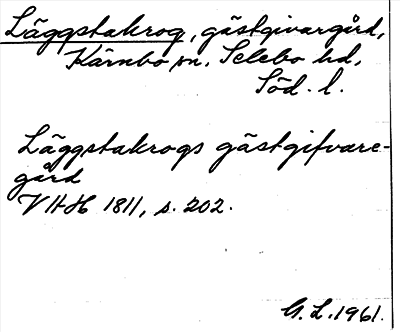 Läggstakrog, gästgivargård,
Kärnbo sn, Selebo hd,
Söd. l.
Läggstakrogs gästgifvare-
gård
VHH 1811, s. 202.
G. L. 1961.